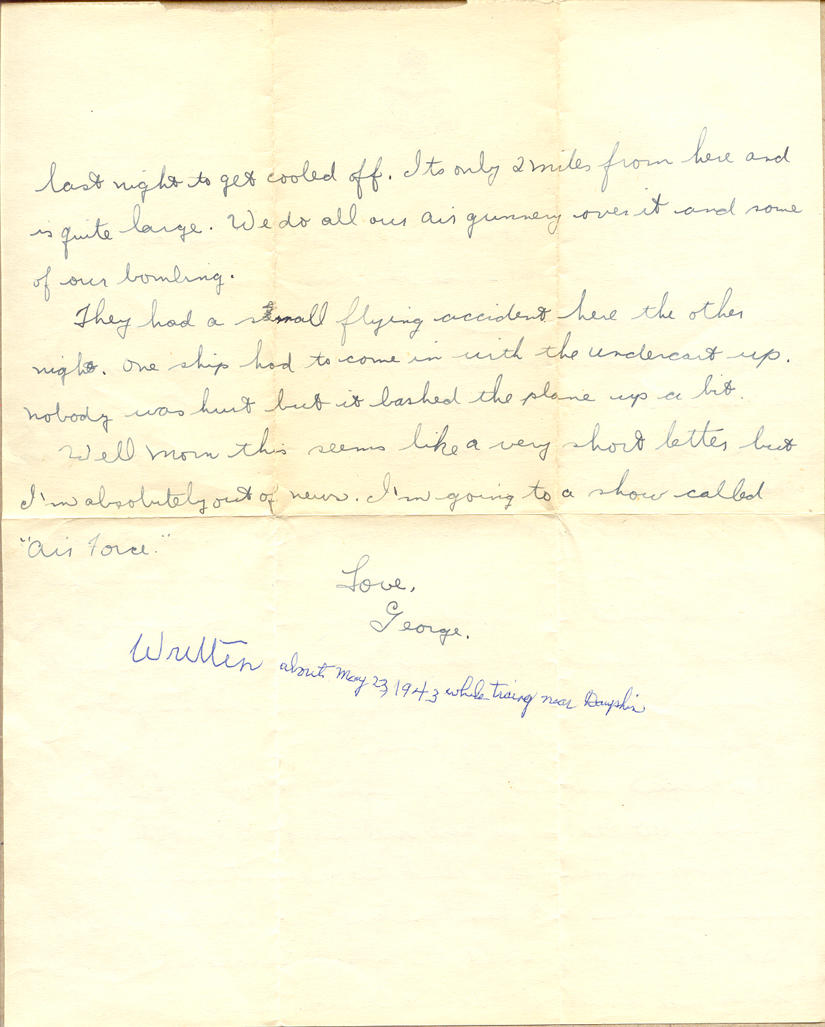 last night to get cooled off. Its only 2 miles from here and
is quite large. We do all our air gunnery over it and some
of our bombing.
They had a small flying accident here the other
night. One ship had to come in with the undercart up.
nobody was hurt but it bashed the plane up a bit.
Well Mom this seems like a very short letter but
I'm absolutely out of news. I'm going to a show called
"Air Force."
Love,
George.
Written about May 23, 1943 while traing near Dauphin